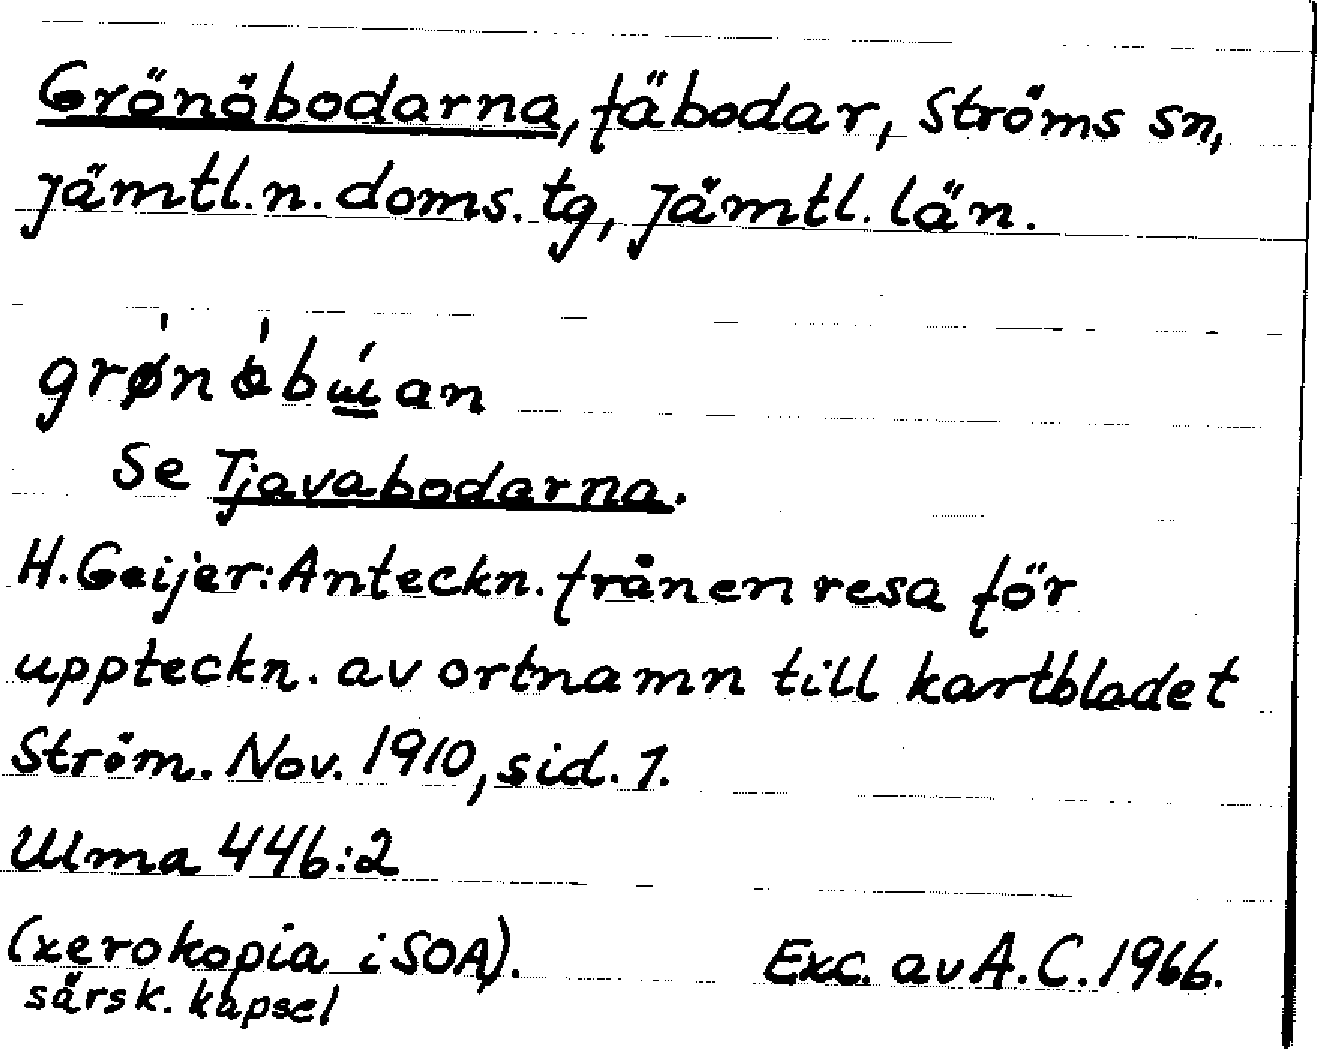 Grönöbodarna, fäbodar, Ströms sn,
Jämtl. n. doms. tg, Jämtl. län.
Se Tjavabodarna.
H. Geijer: Anteckn. från en resa för
uppteckn. av ortnamn till kartbladet
Ström. Nov. 1910, sid. 1.
Ulma 446:2
(xerokopia i SOA). Exc. av A. C. 1966.
särsk. kapsel